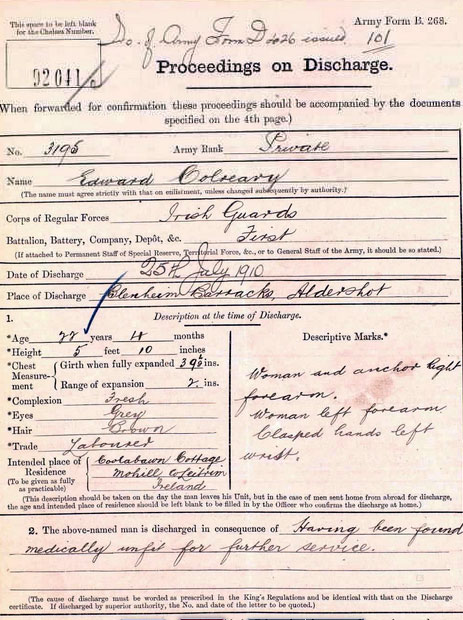 This space to be left blank
for the Chelsea Number.
Army Form B. 268.
No. of Army Form D 426 issued 101
Proceedings on Discharge.
When forwarded for confirmation these proceedings should be accompanied by the documents
specified on the 4th page.)
No. 3195 Army Rank Private
Name Edward Colreavy
(The name must agree strictly with that on enlistment, unless changed subsequently by authority.)
Corps of Regular Forces Irish Guards
Battalion, Battery, Company, Depôt, &c. First
(If attached to Permanent Staff of Special Reserve, Territorial Force, &c., or to General Staff of the Army, it should be so stated.)
Date of Discharge 25th July 1910
Place of Discharge Blenheim Barracks, Aldershot
1. Description at the time of Discharge.
*Age 22 years 4 months
*Height 5 feet 10 inches
*Chest Measurement
Girth when fully expanded 39½ ins.
Range of expansion 2 ins.
*Complexion Fresh
*Eyes Grey
*Hair Brown
*Trade Labourer
Intended place of
Residence
(To be given as fully
as practicable)
Coolabawn Cottage
Mohill Co Leitrim
Ireland
Descriptive Marks.*
Woman and anchor right
forearm.
Woman left forearm
Clasped hands left
wrist.
(This description should be taken on the day the man leaves his Unit, but in the case of men sent home from abroad for discharge,
the age and intended place of residence should be left blank to be filled in by the Officer who confirms the discharge at home.)
2. The above-named man is discharged in consequence of Having been found
medically unfit for further service.
(The cause of discharge must be worded as prescribed in the King's Regulations and be identical with that on the Discharge
certificate. If discharged by superior authority, the No. and date of the letter to be quoted.)